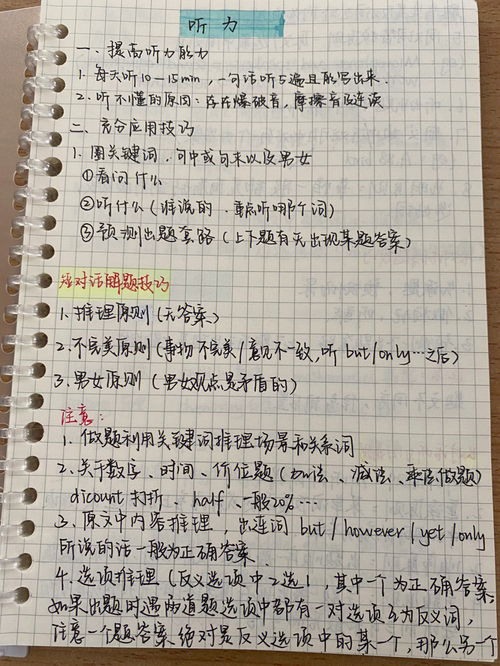 听力
一、提高听力能力
1. 每天听10-15min，一句话听5遍且能写出来.
2. 听不懂的原因：存在爆破音，摩擦音及连读
二、充分应用技巧
1. 圈关键词，句中或句末以及男女
①看问什么
②听什么（谁说的、重点听哪个词）
③预测出题套路（上下题有无出现某题答案）
短对话解题技巧
1. 推理原则（无答案）
2. 不完美原则（事物不完美/意见不一致，听but/only…之后）
3. 男女原则（男女观点是矛盾的）
注意：
1. 做题利用关键词推理场景和关系词
2. 关于数字、时间、价位题（加法、减法、乘法做题）
dicount 打折、half、一般20%…
3. 原文中内容推理，出连词but/however/yet/only
所说的话一般为正确答案.
4. 选项推理（反义选项中2选1，其中一个为正确答案
如果出题时遇两道题选项中都有一对选项互为反义词，
注意一个题答案绝对是反义选项中的某一个，那么另一个